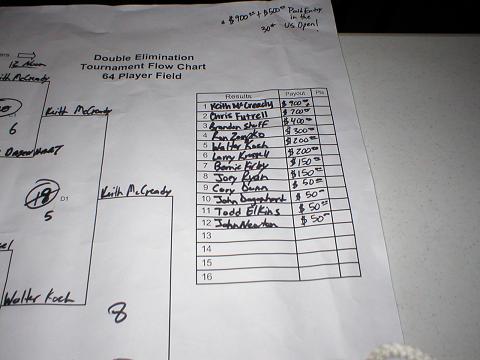 * $900.00 + $500.00 Paid Entry
in the
US Open!
Double Elimination
Tournament Flow Chart
64 Player Field
Keith McCready
6
18
D1
5
Keith McCready
Walter Koch
8
Results Payout Pts
1 Keith McCready $900.00
2 Chris Futrell $700.00
3 Brandon Shuff $400.00
4 Ron $300.00
5 Walter Koch $200.00
6 Larry $200.00
7 Bernie Kirby $150.00
8 Jory Ryan $150.00
9 Cory Dunn $50.00
10 John $50.00
11 Todd Elkins $50.00
12 John Newton $50.00
13
14
15
16